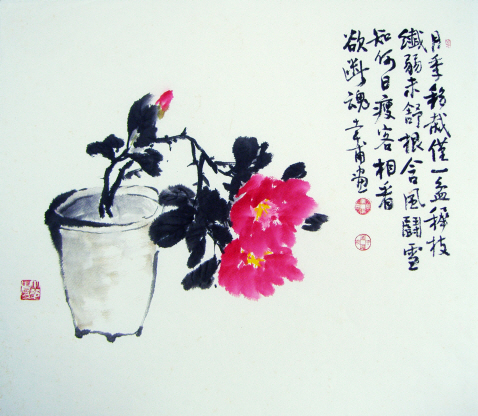 月季移栽僅一盆稺枝
纖弱未舒根含風鬪雪
知何日瘦客相看
欲斷魂